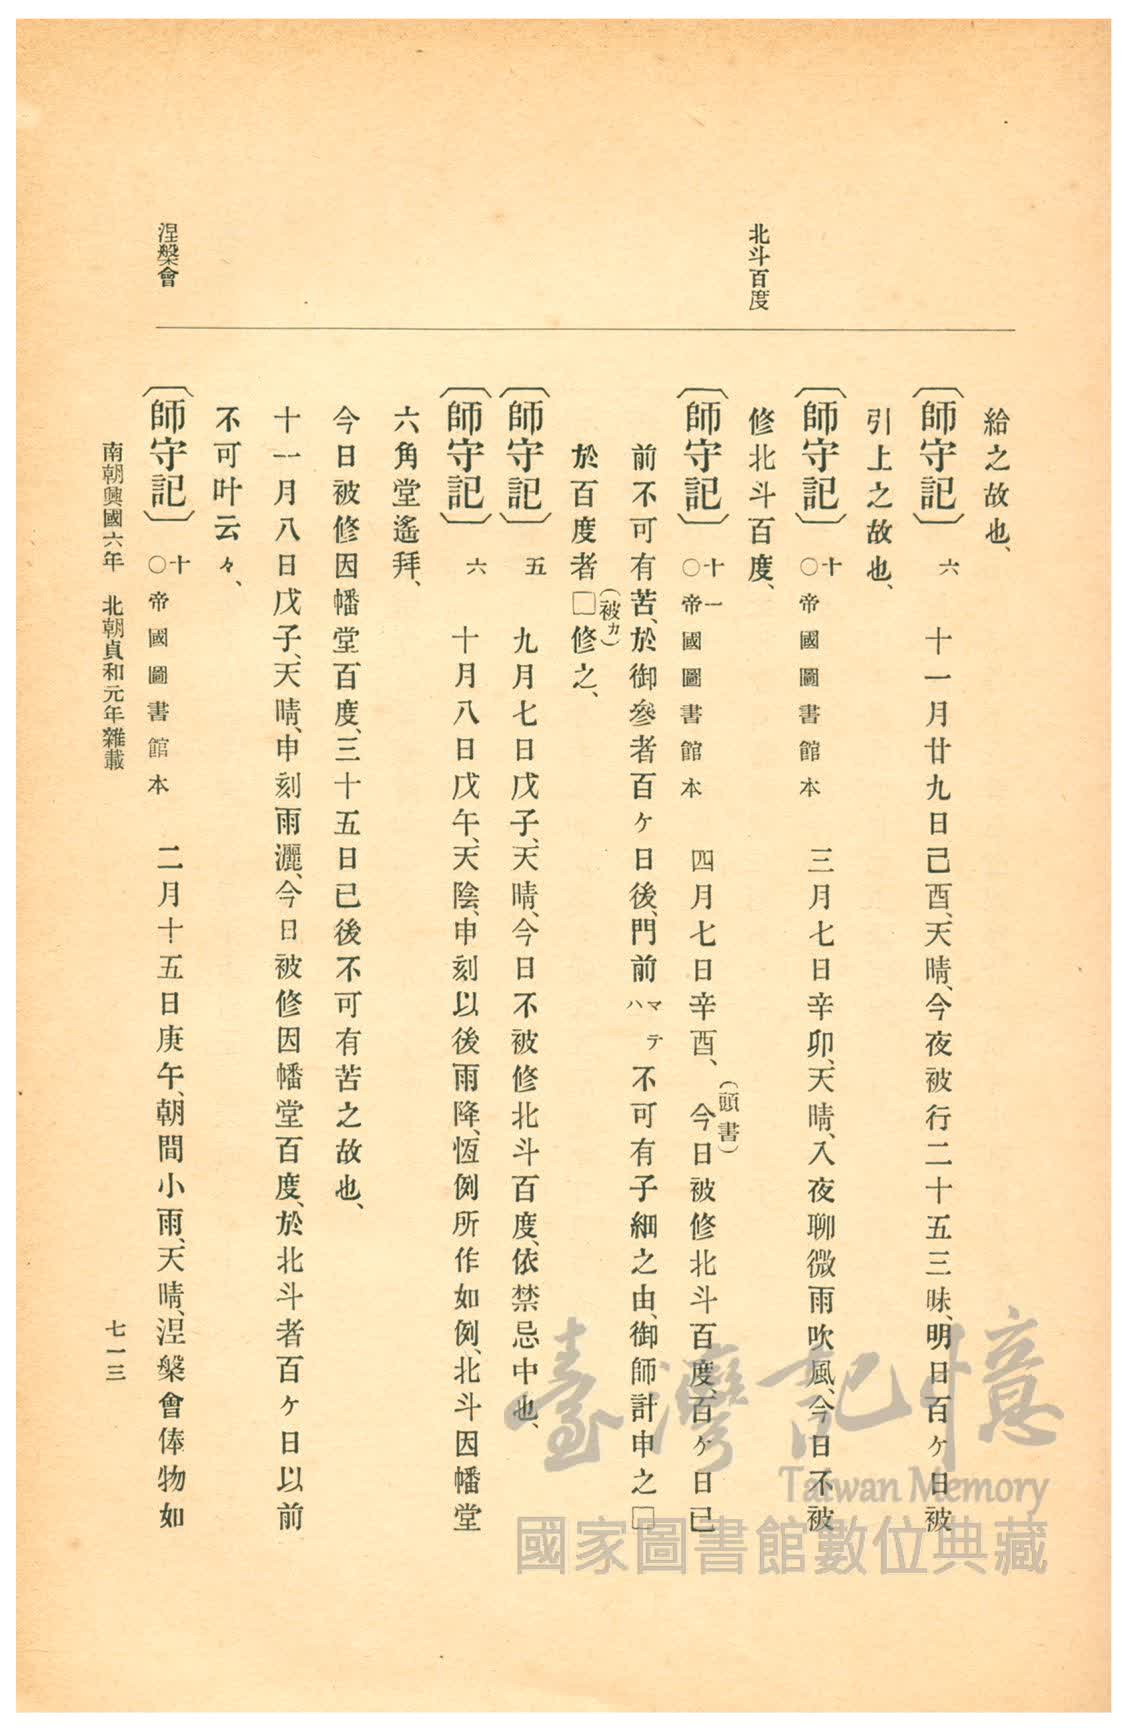 北斗百度
涅槃會
給之故也、
〔師守記〕六 十一月廿九日己酉、天晴、今夜被行二十五三昧、明日百ケ日被
引上之故也、
〔師守記〕十〇帝國圖書館本 三月七日辛卯、天晴、入夜聊微雨吹風、今日不被
修北斗百度、
〔師守記〕十一〇帝國圖書館本 四月七日辛酉、(頭書)今日被修北斗百度、百ケ日已
前不可有苦、於御參者百ケ日後、門前マテハ不可有子細之由、御師計申之□
於百度者□(被カ)修之、
〔師守記〕五 九月七日戊子、天晴、今日不被修北斗百度、依禁忌中也、
〔師守記〕六 十月八日戊午、天陰、申刻以後雨降、恆例所作如例、北斗因幡堂
六角堂遙拜、
今日被修因幡堂百度、三十五日已後不可有苦之故也、
十一月八日戊子、天晴、申刻雨灑、今日被修因幡堂百度、於北斗者百ケ日以前
不可叶云々、
〔師守記〕十〇帝國圖書館本 二月十五日庚午、朝間小雨、天晴、涅槃會俸物如
南朝興國六年 北朝貞和元年雜載
七一三
臺灣記憶
Taiwan Memory
國家圖書館數位典藏